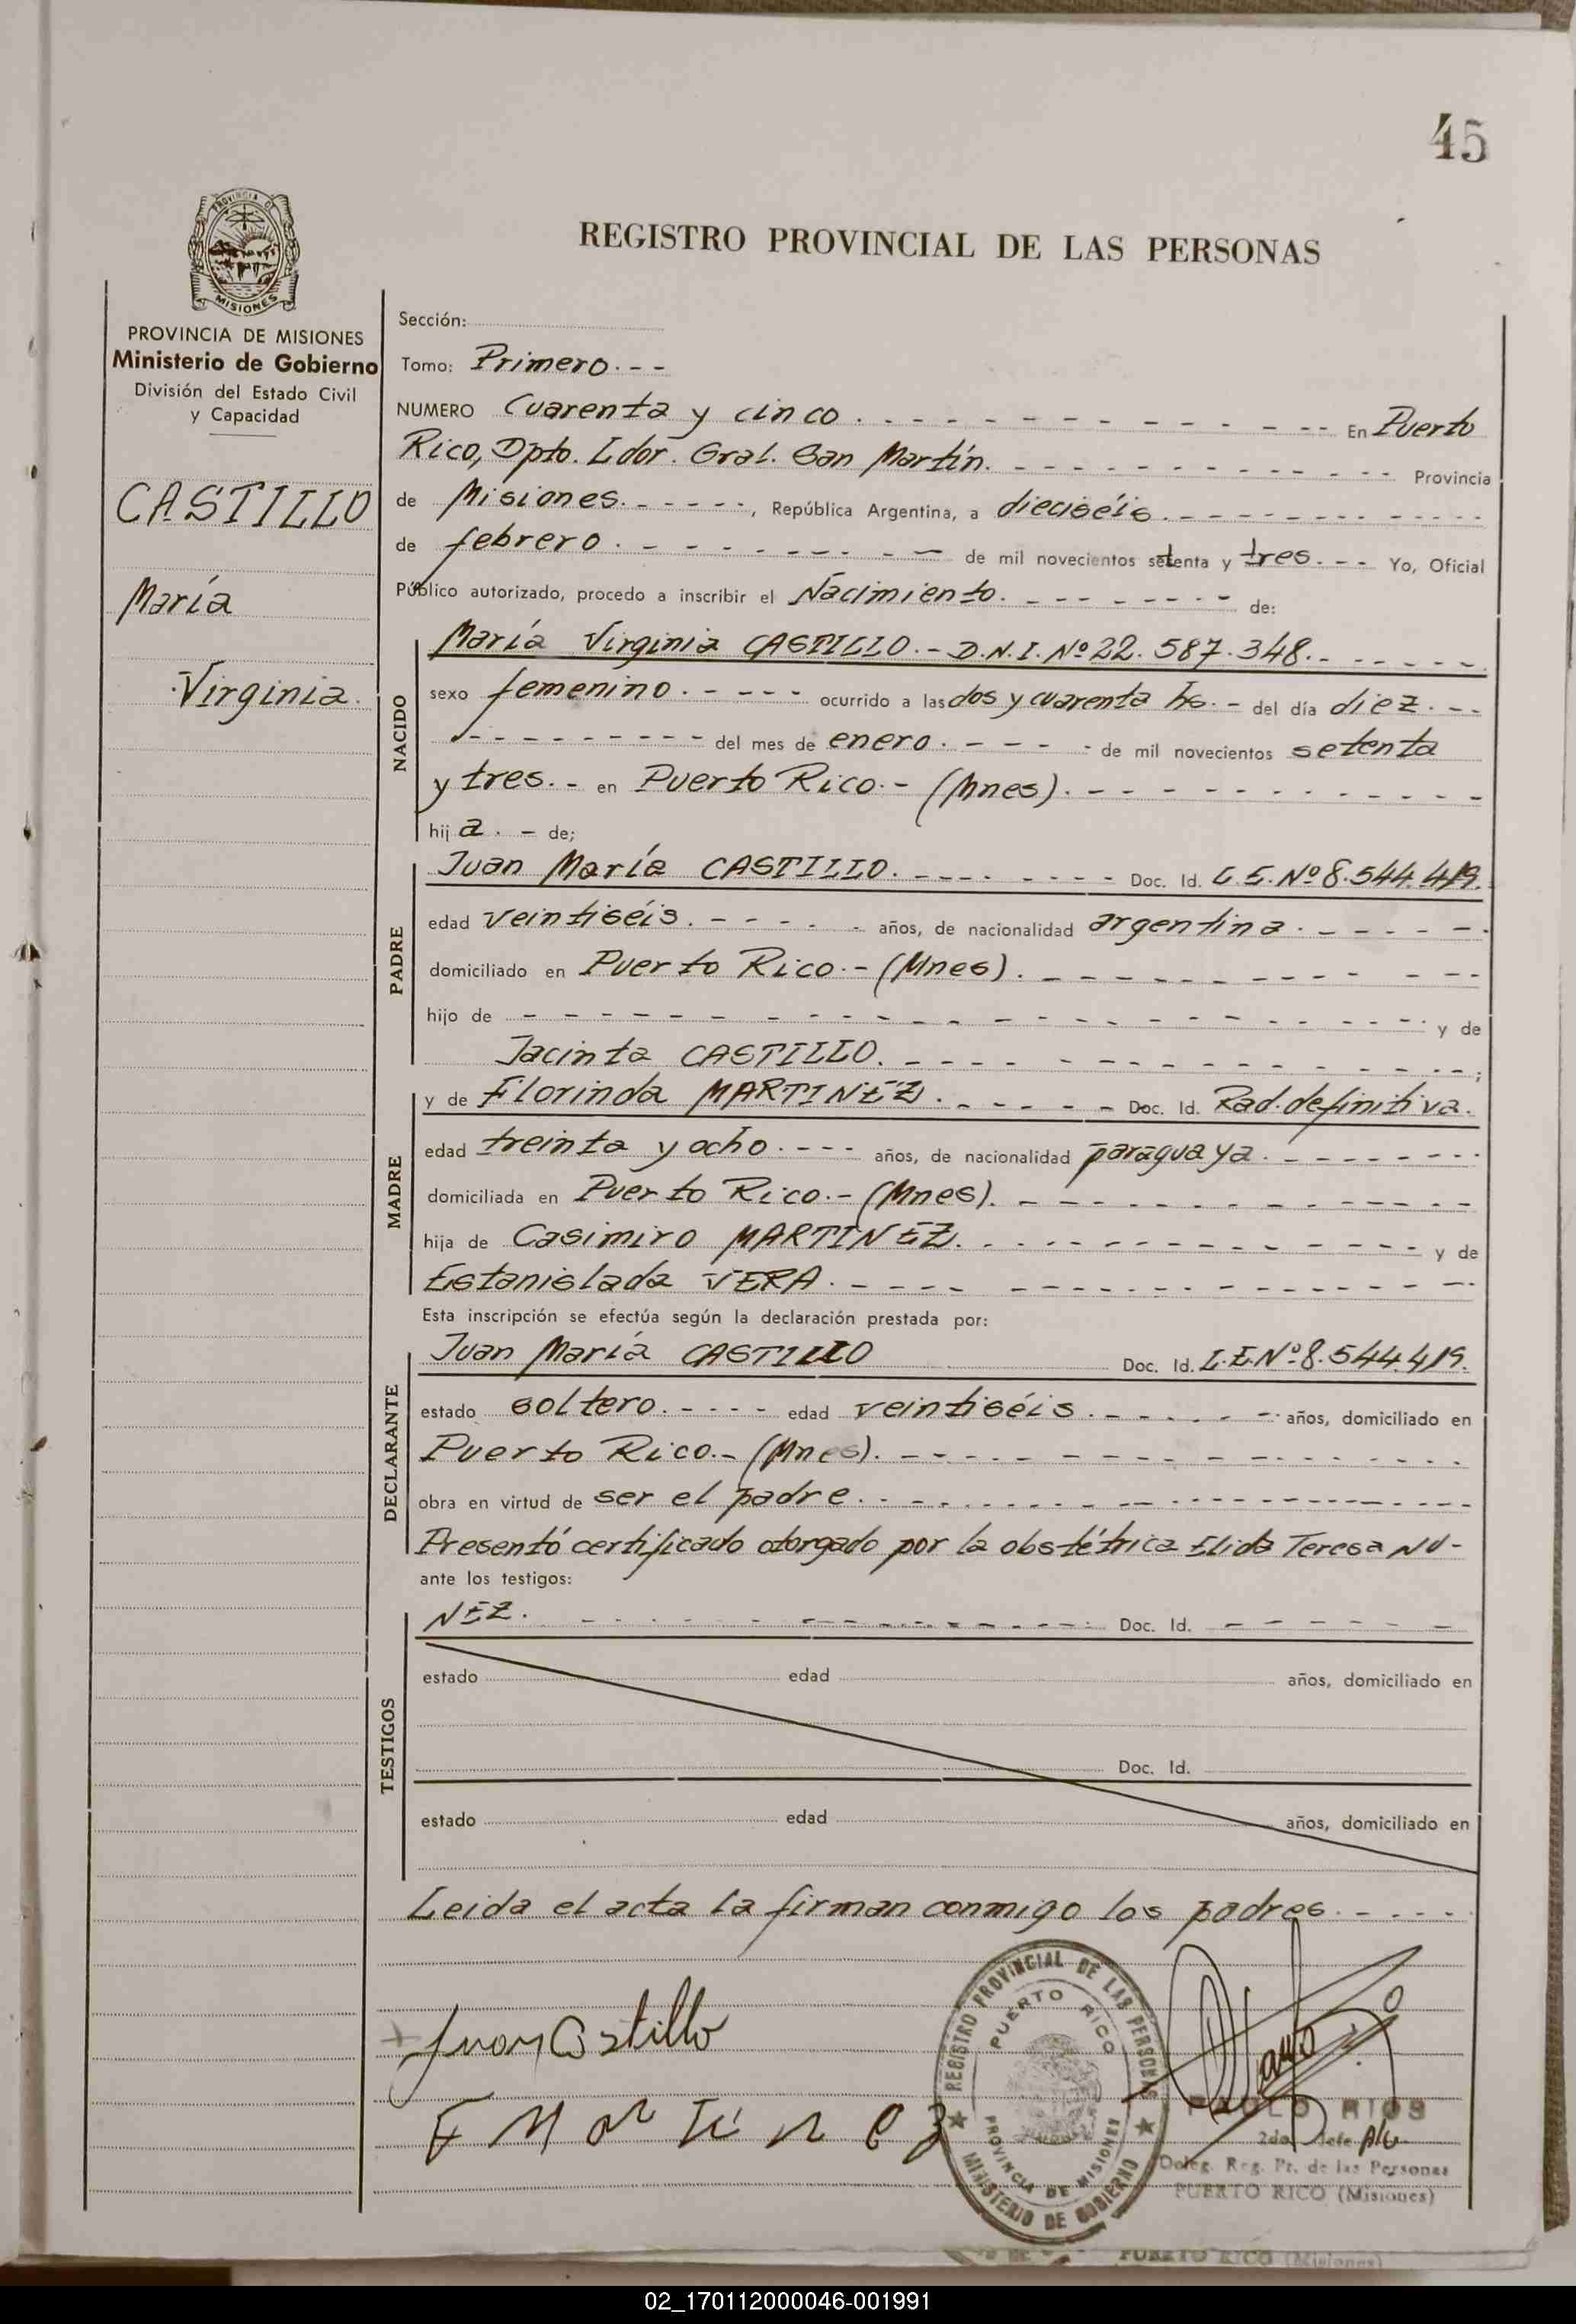 45
PROVINCIA DE
MISIONES
REGISTRO PROVINCIAL DE LAS PERSONAS
PROVINCIA DE MISIONES
Ministerio de Gobierno
División del Estado Civil
y Capacidad
CASTILLO
María
Virginia.
Sección:
Tomo: Primero. - -
NUMERO Cuarenta y cinco. - - - - - - - - - - - - En Puerto
Rico, Dpto. Ldor. Gral. San Martín. - - - - - - - - - - - - Provincia
de Misiones. - - - - -, República Argentina, a dieciséis. - - - - - - - - - -
de febrero. - - - - - - - - - de mil novecientos setenta y tres. - - Yo, Oficial
Público autorizado, procedo a inscribir el Nacimiento. - - - - - - - - de:
NACIDO
María Virginia CASTILLO. - D.N.I. Nº 22.587.348. - - - - - -
sexo femenino. - - - - ocurrido a las dos y cuarenta hs. - del día diez. - -
- - - - - - - - - - del mes de enero. - - - - de mil novecientos setenta
y tres. - en Puerto Rico. - (Mnes). - - - - - - - - - - - -
hij a. - de;
PADRE
Juan María CASTILLO. - - - - - - - - Doc. Id. L.E. Nº 8.544.419.
edad veintiséis. - - - - - años, de nacionalidad argentina. - - - - - -
domiciliado en Puerto Rico. - (Mnes). - - - - - - - - - - -
hijo de - - - - - - - - - - - - - - - - - - - - y de
Jacinta CASTILLO. - - - - - - - - - - - - - - - ;
MADRE
y de Florinda MARTINEZ. - - - - - - Doc. Id. Rad. definitiva.
edad treinta y ocho. - - - - años, de nacionalidad paraguaya. - - - - - - -
domiciliada en Puerto Rico. - (Mnes). - - - - - - - - - - - -
hija de Casimiro MARTINEZ. - - - - - - - - - - - - - y de
Estanislada VERA. - - - - - - - - - - - - - - -
Esta inscripción se efectúa según la declaración prestada por:
DECLARANTE
Juan María CASTILLO Doc. Id. L.E. Nº 8.544.419.
estado soltero. - - - - edad veintiséis. - - - - - - años, domiciliado en
Puerto Rico. - (Mnes). - - - - - - - - - - - - - - -
obra en virtud de ser el padre. - - - - - - - - - - - - - - - -
Presentó certificado otorgado por la obstétrica Elida Teresa NU-
ante los testigos:
TESTIGOS
NEZ. - - - - - - - - - - - - - - Doc. Id. - - - - - -
estado edad años, domiciliado en
Doc. Id.
estado edad años, domiciliado en
Leida el acta la firman conmigo los padres. - - - -
Juan Castillo
F Martínez
REGISTRO PROVINCIAL DE LAS PERSONAS
PUERTO RICO
PROVINCIA DE MISIONES
MINISTERIO DE GOBIERNO
PABLO RIOS
2do. Jefe A/c.
Deleg. Reg. Pr. de las Personas
PUERTO RICO (Misiones)
PUERTO RICO (Misiones)
02_170112000046-001991